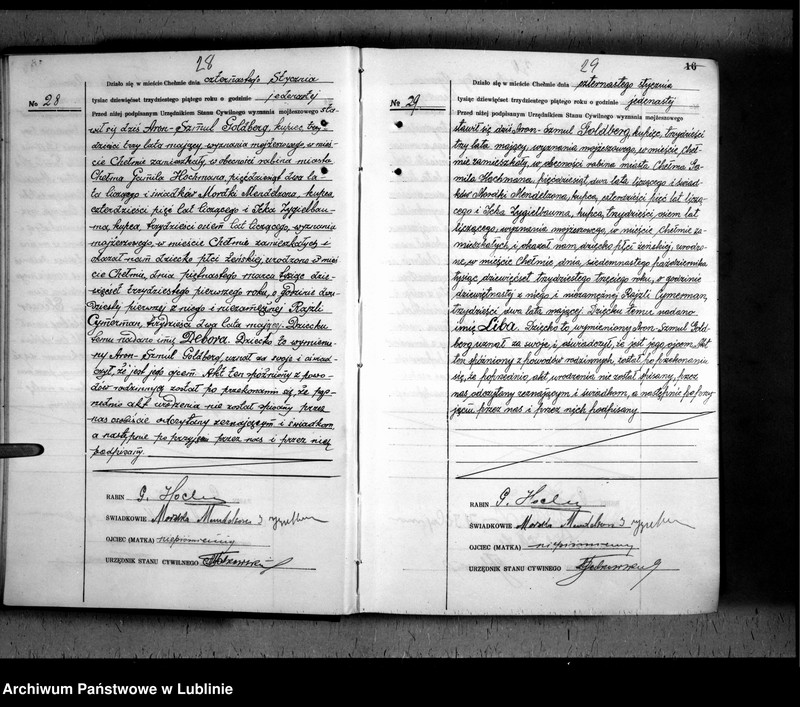 28
Działo się w mieście Chełmie dnia czternastego Stycznia
№ 28
tysiąc dziewięćset trzydziestego piątego roku o godzinie jedenastej
Przed niżej podpisanym Urzędnikiem Stanu Cywilnego wyznania mojżeszowego sta-
wił się dziś Aron-Szmul Goldberg, kupiec, trzy-
dzieści trzy lata mający, wyznania mojżeszowego, w mieś-
cie Chełmie zamieszkały, w obecności rabina miasta
Chełma Gamila Hochmana, pięćdziesiąt dwa la-
ta liczącego i świadków Mordki Mendelzona, kupca
czterdzieści pięć lat liczącego i Icka Zygielbau-
ma, kupca, trzydzieści osiem lat liczącego, wyznania
mojżeszowego, w mieście Chełmie zamieszkałych i
okazał nam dziecko płci żeńskiej, urodzone w mieś-
cie Chełmie, dnia piętnastego marca tysiąc dzie-
więćset trzydziestego pierwszego roku, o godzinie dwu-
dziestej pierwszej z niego i niezamężnej Rajzli
Cymerman, trzydzieści dwa lata mającej. Dziecku
temu nadano imię Debora. Dziecko to wymienio-
ny Aron-Szmul Goldberg, uznał za swoje i oświad-
czył, że jest jego ojcem. Akt ten opóźniony z powo-
dów rodzinnych, został po przekonaniu się, że pop-
rzednio akt urodzenia nie został spisany przez
nas osobiście odczytany zeznającym i świadkom,
a następnie po przyjęciu przez nas i przez nich
podpisany.
RABIN G. Hochm
ŚWIADKOWIE Mordka Mendelson J Zygielbaum
OJCIEC (MATKA) niepiśmienny
URZĘDNIK STANU CYWILNEGO
29
16
Działo się w mieście Chełmie dnia czternastego stycznia
№ 29
tysiąc dziewięćset trzydziestego piątego roku o godzinie jedenastej
Przed niżej podpisanym Urzędnikiem Stanu Cywilnego wyznania mojżeszowego
stawił się dziś Aron-Szmul Goldberg, kupiec, trzydzieści
trzy lata mający, wyznania mojżeszowego, w mieście Cheł-
mie zamieszkały, w obecności rabina miasta Chełma Ga-
mila Hochmana, pięćdziesiąt dwa lata liczącego i świad-
ków Mordki Mendelzona, kupca, czterdzieści pięć lat liczą-
cego i Icka Zygielbauma, kupca, trzydzieści osiem lat
liczącego, wyznania mojżeszowego, w mieście Chełmie za-
mieszkałych i okazał nam dziecko płci żeńskiej, urodzo-
ne w mieście Chełmie, dnia siedemnastego października
tysiąc dziewięćset trzydziestego trzeciego roku, o godzinie
dziewiętnastej z niego i niezamężnej Rajzli Cymerman,
trzydzieści dwa lata mającej. Dziecku temu nadano
imię Liba. Dziecko to, wymieniony Aron-Szmul Gold-
berg uznał za swoje i oświadczył, że jest jego ojcem. Akt
ten opóźniony z powodów rodzinnych, został po przekonaniu
się, że poprzednio, akt urodzenia nie został spisany, przez
nas odczytany zeznającym i świadkom, a następnie po przy-
jęciu, przez nas i przez nich podpisany
RABIN G. Hochm
ŚWIADKOWIE Mordka Mendelson J Zygielbaum
OJCIEC (MATKA) niepiśmienny
URZĘDNIK STANU CYWILNEGO
Archiwum Państwowe w Lublinie